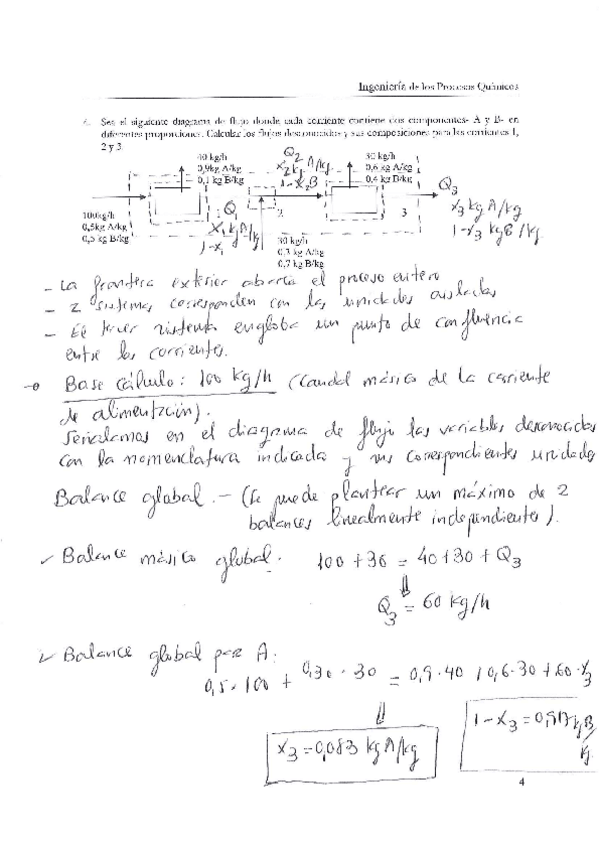 Ingeniería de los Procesos Químicos
6. Sea el siguiente diagrama de flujo donde cada corriente contiene dos componentes- A y B- en
diferentes proporciones. Calcular los flujos desconocidos y sus composiciones para las corrientes 1,
2 y 3.
40 kg/h
0,9kg A/kg
0,1 kg B/kg
Q2
x2 kg A/kg
1-x2 B
30 kg/h
0,6 kg A/kg
0,4 kg B/kg
Q3
x3 kg A/kg
1-x3 kg B/kg
100kg/h
0,5kg A/kg
0,5 kg B/kg
Q1
x1 kg A/kg
1-x1
2
3
30 kg/h
0,3 kg A/kg
0,7 kg B/kg
- La frontera exterior abarca el proceso entero
- 2 sistemas corresponden con las unidades aisladas
- El tercer sistema engloba un punto de confluencia
entre las corrientes.
Base cálculo: 100 kg/h (Caudal másico de la corriente
de alimentación).
Señalamos en el diagrama de flujo las variables desconocidas
con la nomenclatura indicada y sus correspondientes unidades
Balance global.- (Se puede plantear un máximo de 2
balances linealmente independientes).
✓ Balance másico global: 100 + 30 = 40 + 30 + Q3
⇓
Q3 = 60 kg/h
✓ Balance global par A:
0,5 · 100 + 0,30 · 30 = 0,9 · 40 + 0,6 · 30 + 60 · x3
⇓
x3 = 0,083 kg A/kg
1-x3 = kg B/kg
4